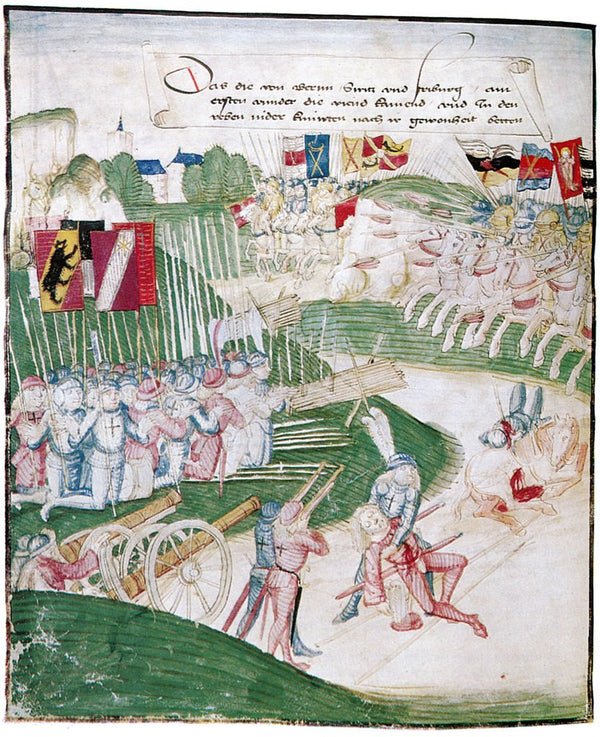 Das die von Bernn Switz vnd friburg am
ersten vnder die viend kamend vnd In den
reben nider knüwten nach ir gewonheit betten